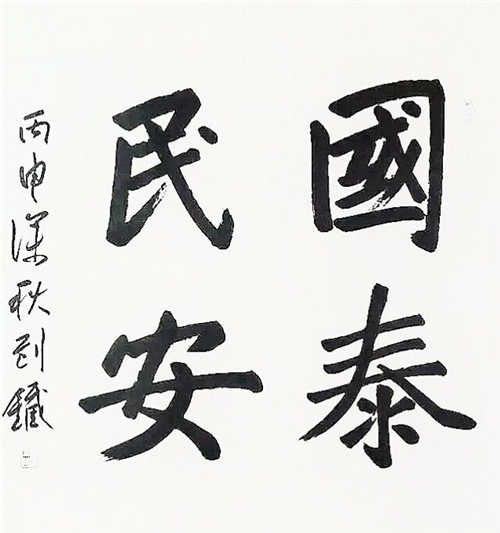 國泰
民安
丙申深秋刘鐵